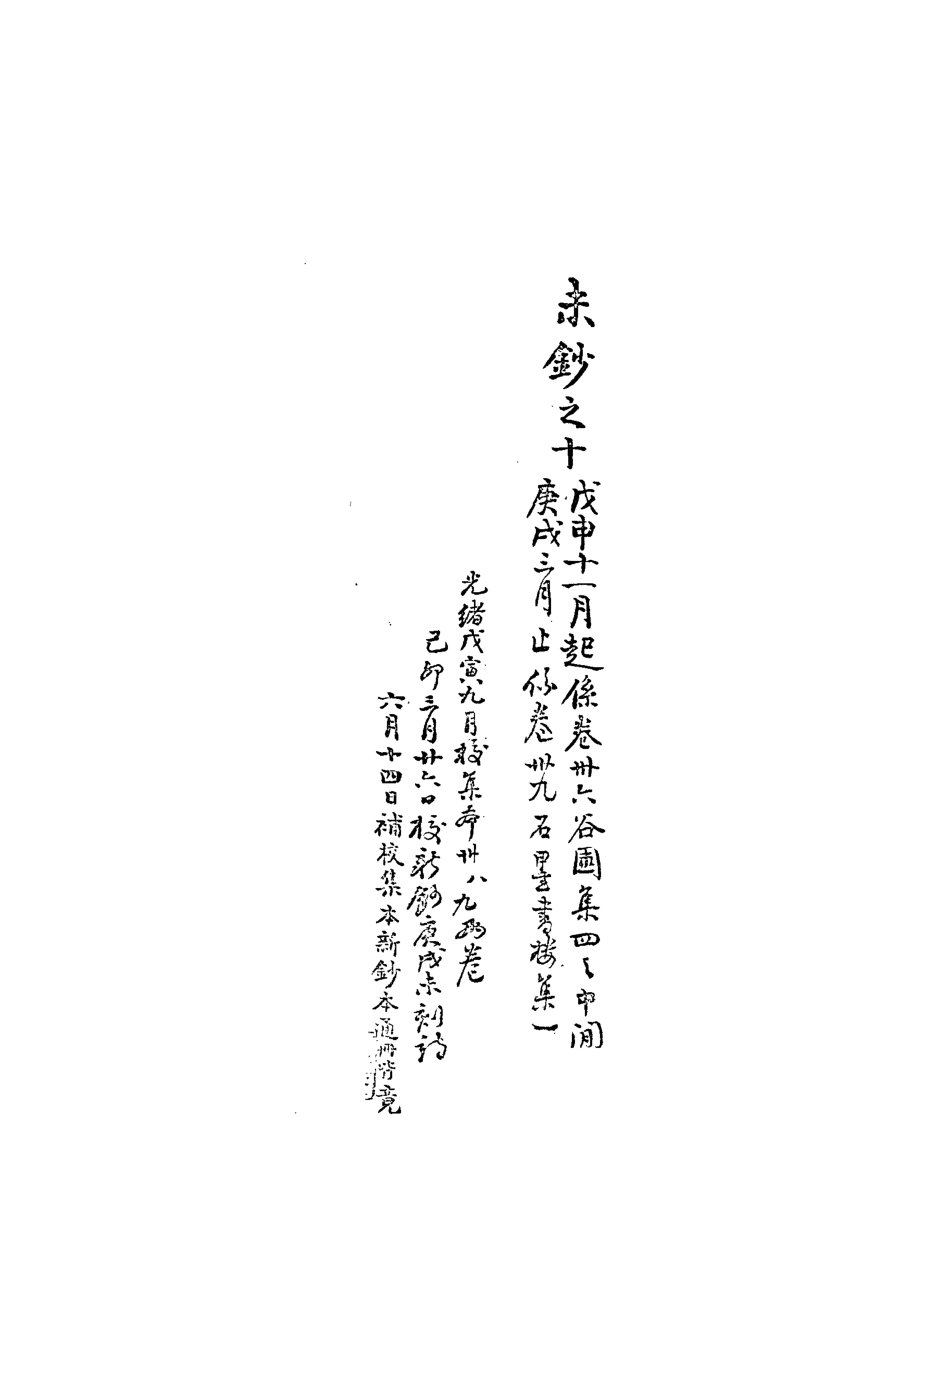 未鈔之十
戊申十一月起係卷卅六谷園集四之中間
庚戌三月止係卷卅九石墨書楼集一
光緒戊寅九月校集本卅八九兩卷
己卯三月廿六日校新鈔庚戌未刻詩
六月十四日補校集本新鈔本通冊皆竟